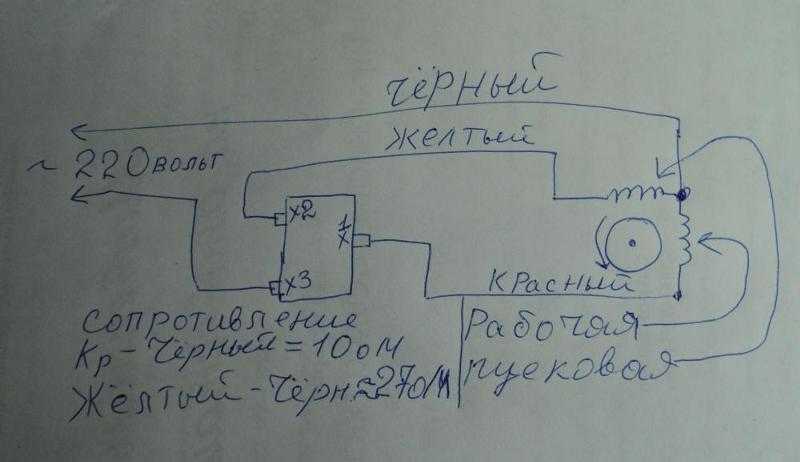 чёрный
желтый
~ 220 вольт
x2
1
x
x3
красный
сопротивление
Кр - чёрный = 10 ом
Жёлтый - чёрн ≈ 27 ом
Рабочая
пусковая